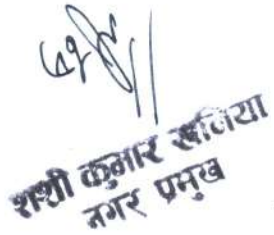 शशी कुमार खनिया
नगर प्रमुख